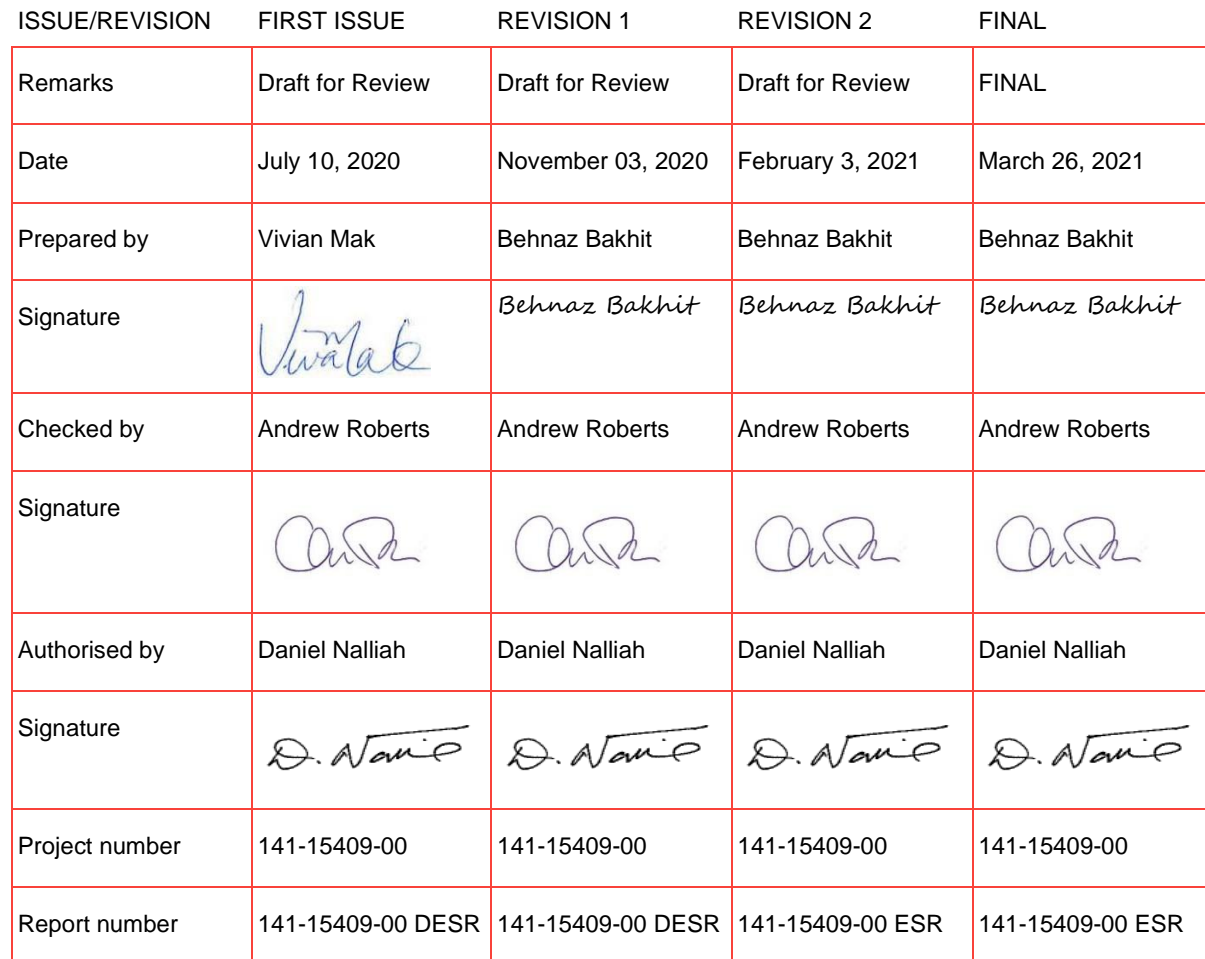 ISSUE/REVISION FIRST ISSUE REVISION 1 REVISION 2 FINAL
Remarks Draft for Review Draft for Review Draft for Review FINAL
Date July 10, 2020 November 03, 2020 February 3, 2021 March 26, 2021
Prepared by Vivian Mak Behnaz Bakhit Behnaz Bakhit Behnaz Bakhit
Signature Behnaz Bakhit Behnaz Bakhit Behnaz Bakhit
Checked by Andrew Roberts Andrew Roberts Andrew Roberts Andrew Roberts
Signature
Authorised by Daniel Nalliah Daniel Nalliah Daniel Nalliah Daniel Nalliah
Signature D. D. D. D.
Project number 141-15409-00 141-15409-00 141-15409-00 141-15409-00
Report number 141-15409-00 DESR 141-15409-00 DESR 141-15409-00 ESR 141-15409-00 ESR